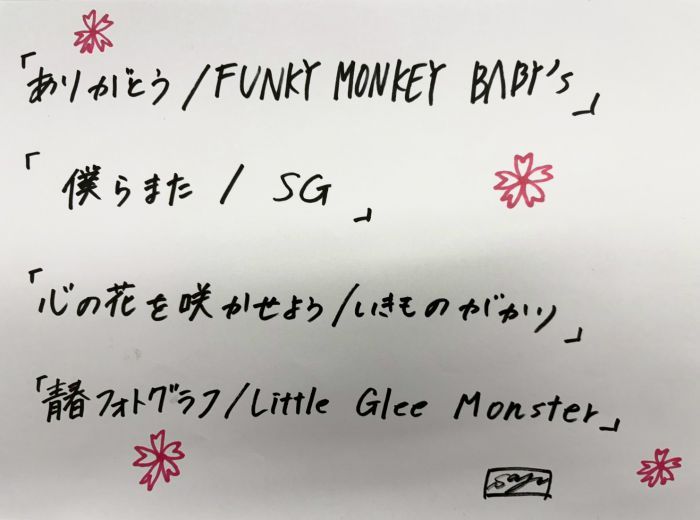 「ありがとう/FUNKY MONKEY BABY's」
「僕らまた/SG」
「心の花を咲かせよう/いきものがかり」
「青春フォトグラフ/Little Glee Monster」